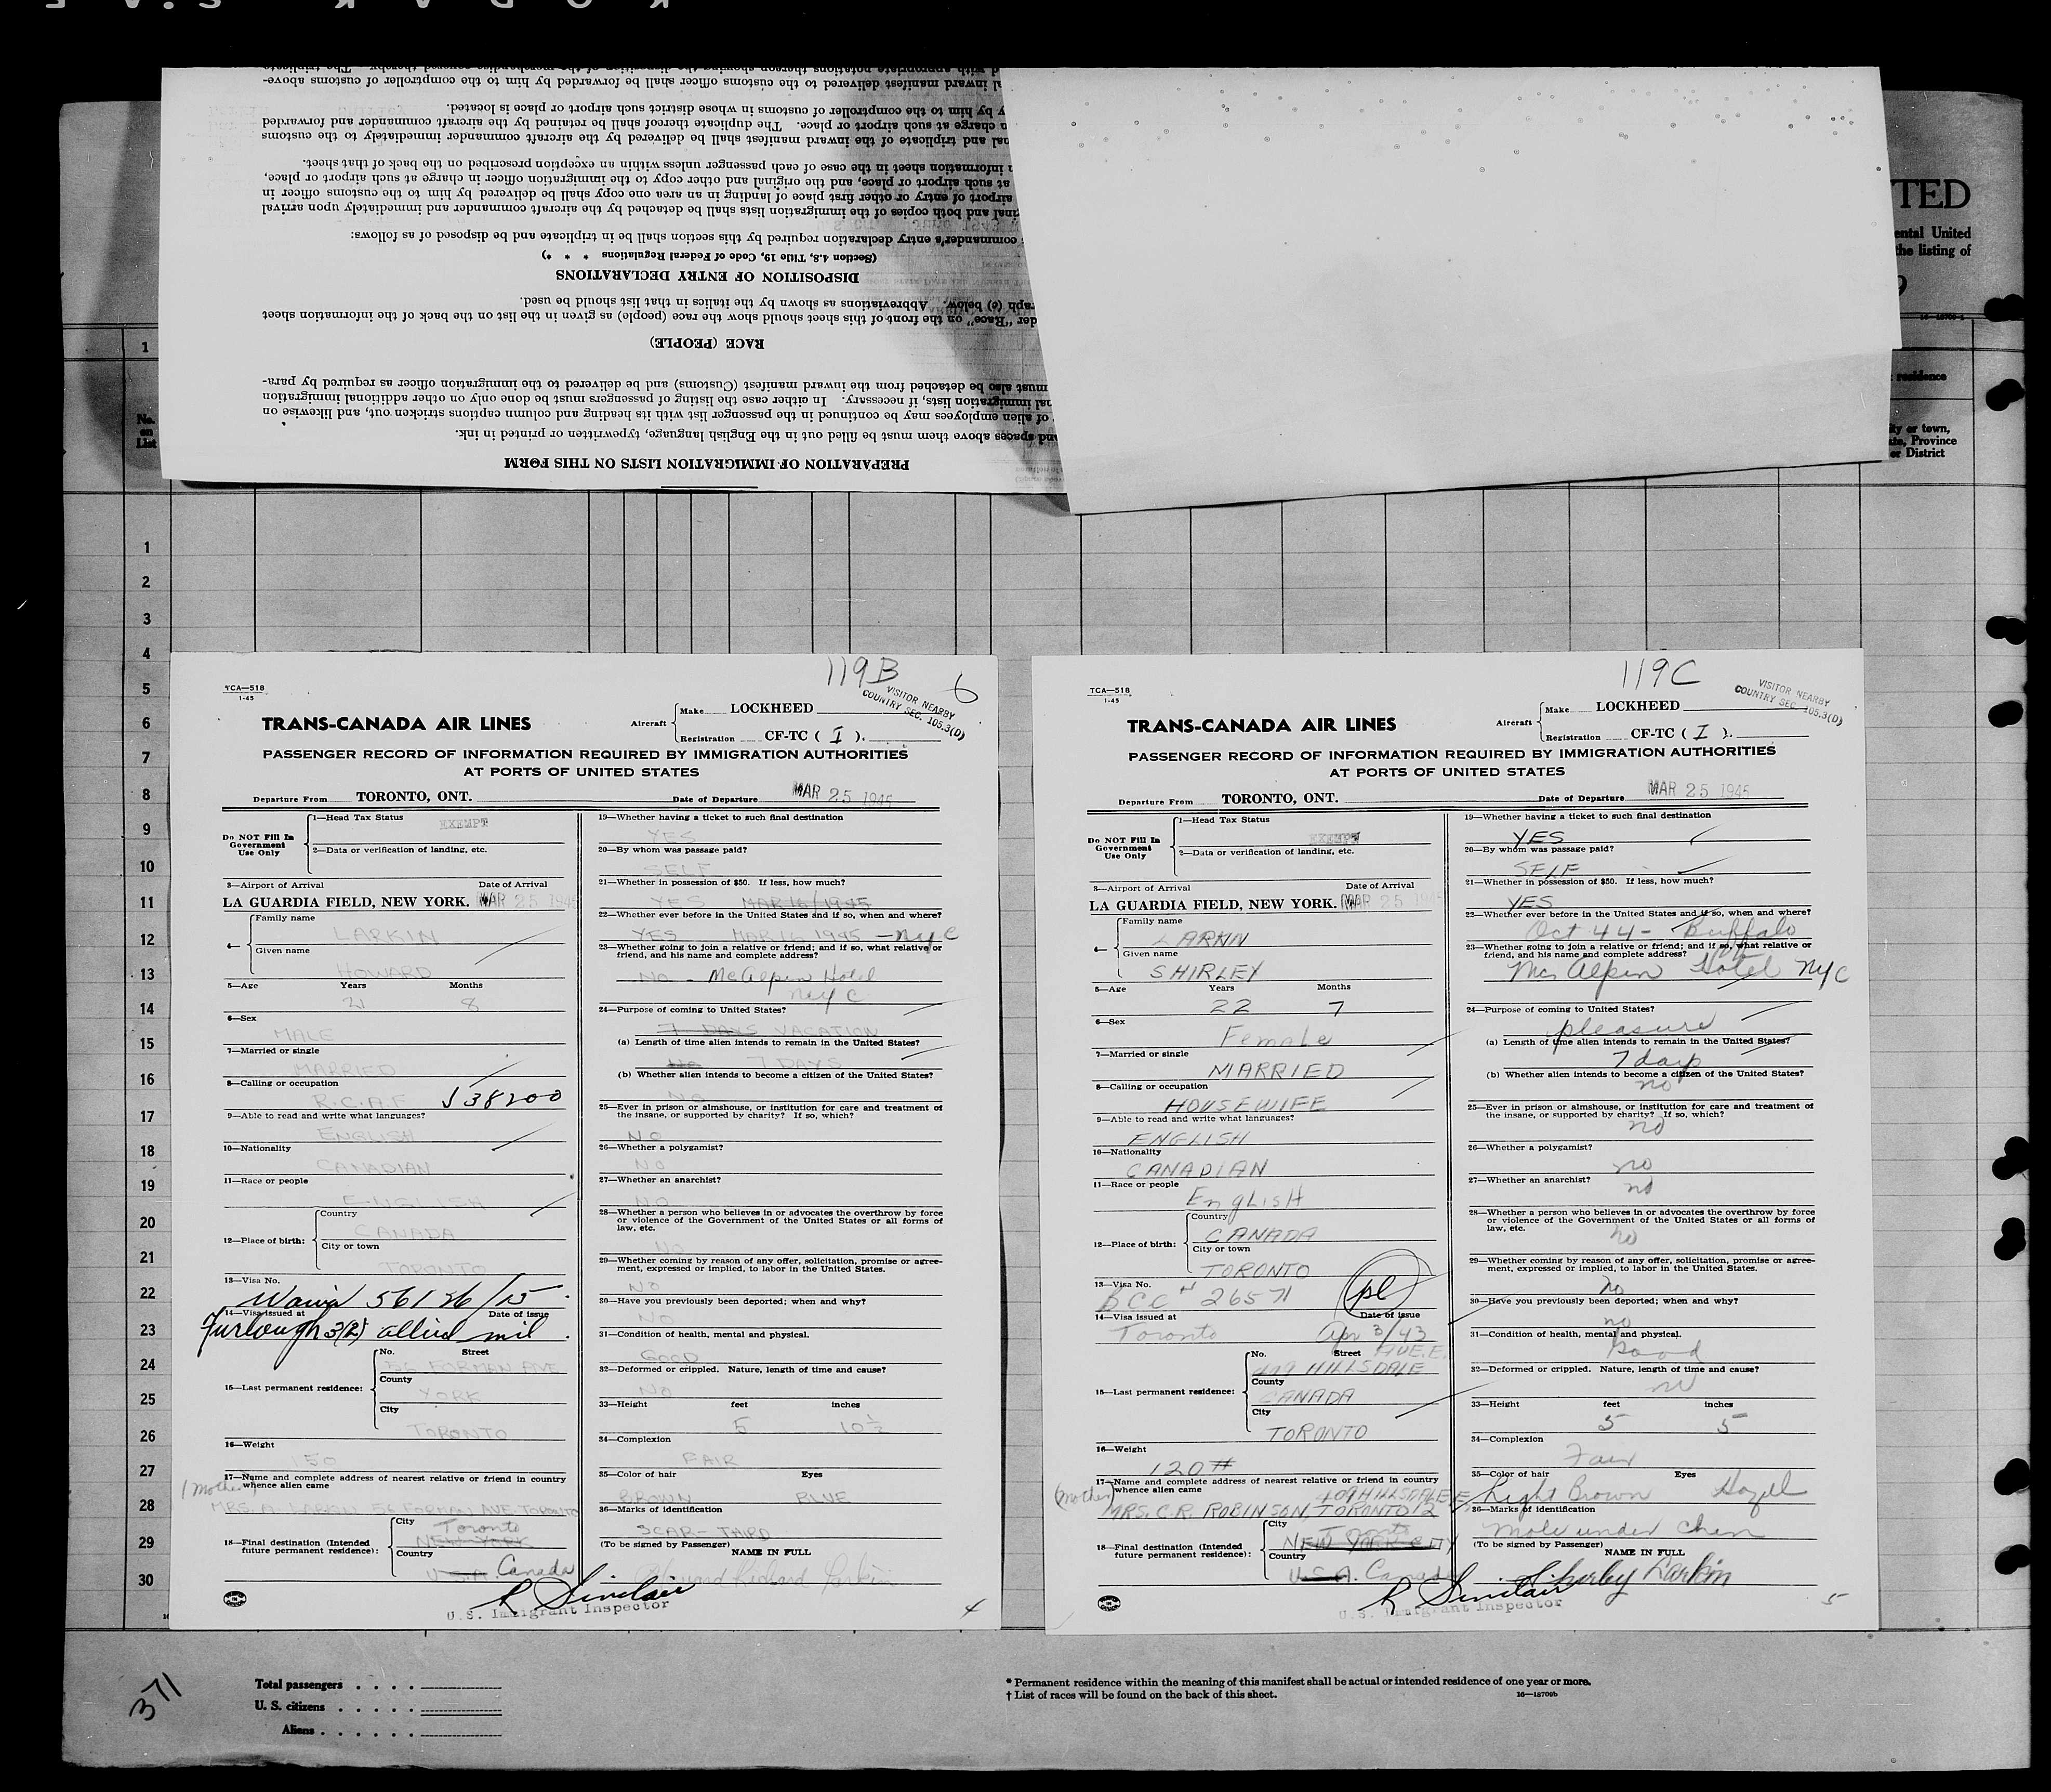 PREPARATION OF IMMIGRATION LISTS ON THIS FORM
and spaces above them must be filled out in the English language, typewritten or printed in ink.
of alien employees may be continued in the passenger list with its heading and column captions stricken out, and likewise on
immigration lists, if necessary. In either case the listing of passengers must be done only on other additional immigration
must also be detached from the inward manifest (Customs) and be delivered to the immigration officer as required by para-
RACE (PEOPLE)
"Race" on the front of this sheet should show the race (people) as given in the list on the back of the information sheet
(c) below. Abbreviations as shown by the italics in that list should be used.
DISPOSITION OF ENTRY DECLARATIONS
(Section 4.8, Title 19, Code of Federal Regulations * * *)
commander's entry declaration required by this section shall be in triplicate and be disposed of as follows:
and both copies of the immigration lists shall be detached by the aircraft commander and immediately upon arrival
airport of entry or other first place of landing in an area one copy shall be delivered by him to the customs officer in
at such airport or place, and the original and other copy to the immigration officer in charge at such airport or place,
information sheet in the case of each passenger unless within an exception prescribed on the back of that sheet.
and triplicate of the inward manifest shall be delivered by the aircraft commander immediately to the customs
charge at such airport or place. The duplicate thereof shall be retained by the aircraft commander and forwarded
by him to the comptroller of customs in whose district such airport or place is located.
inward manifest delivered to the customs officer shall be forwarded by him to the comptroller of customs above-
TED
ental United
the listing of
residence
ity or town,
ate, Province
or District
No.
on
List
1
1
2
3
4
5
6
7
8
9
10
11
12
13
14
15
16
17
18
19
20
21
22
23
24
25
26
27
28
29
30
119B 6
TCA—518
1-45
VISITOR NEARBY
COUNTRY SEC. 105.3(D)
TRANS-CANADA AIR LINES
Aircraft
Make LOCKHEED
Registration CF-TC ( I ).
PASSENGER RECORD OF INFORMATION REQUIRED BY IMMIGRATION AUTHORITIES
AT PORTS OF UNITED STATES
Departure From TORONTO, ONT. Date of Departure MAR 25 1945
Do NOT Fill In
Government
Use Only
1—Head Tax Status EXEMPT
2—Data or verification of landing, etc.
3—Airport of Arrival Date of Arrival
LA GUARDIA FIELD, NEW YORK. MAR 25 1945
4— Family name
LARKIN
Given name
HOWARD
5—Age Years Months
21 8
6—Sex
MALE
7—Married or single
MARRIED
8—Calling or occupation
R.C.A.F. J38200
9—Able to read and write what languages?
ENGLISH
10—Nationality
CANADIAN
11—Race or people
ENGLISH
12—Place of birth: Country
CANADA
City or town
TORONTO
13—Visa No.
56126/15
14—Visa issued at Date of issue
Furlough 3(2) allied mil.
No. Street
56 FORMAN AVE
15—Last permanent residence: County
YORK
City
TORONTO
16—Weight
150
17—Name and complete address of nearest relative or friend in country
whence alien came
(Mother)
MRS. A. LARKIN 56 FORMAN AVE. TORONTO
18—Final destination (Intended
future permanent residence):
City
Toronto
NEW YORK
Country
U.S.A. Canada
19—Whether having a ticket to such final destination
YES
20—By whom was passage paid?
SELF
21—Whether in possession of $50. If less, how much?
YES MAR 16/1945
22—Whether ever before in the United States and if so, when and where?
YES MAR 16 1945 — NYC
23—Whether going to join a relative or friend; and if so, what relative or
friend, and his name and complete address?
NO - McAlpin Hotel
NYC
24—Purpose of coming to United States?
7 DAYS VACATION
(a) Length of time alien intends to remain in the United States?
NO 7 DAYS
(b) Whether alien intends to become a citizen of the United States?
NO
25—Ever in prison or almshouse, or institution for care and treatment of
the insane, or supported by charity? If so, which?
NO
26—Whether a polygamist?
NO
27—Whether an anarchist?
NO
28—Whether a person who believes in or advocates the overthrow by force
or violence of the Government of the United States or all forms of
law, etc.
NO
29—Whether coming by reason of any offer, solicitation, promise or agree-
ment, expressed or implied, to labor in the United States.
NO
30—Have you previously been deported; when and why?
NO
31—Condition of health, mental and physical.
GOOD
32—Deformed or crippled. Nature, length of time and cause?
NO
33—Height feet inches
5 10½
34—Complexion
FAIR
35—Color of hair Eyes
BROWN BLUE
36—Marks of identification
SCAR- THIRD
(To be signed by Passenger)
NAME IN FULL
Howard Richard Larkin
R Sinclair
U.S. Immigrant Inspector
4
119C
TCA—518
1-45
VISITOR NEARBY
COUNTRY SEC. 105.3(D)
TRANS-CANADA AIR LINES
Aircraft
Make LOCKHEED
Registration CF-TC ( I ).
PASSENGER RECORD OF INFORMATION REQUIRED BY IMMIGRATION AUTHORITIES
AT PORTS OF UNITED STATES
Departure From TORONTO, ONT. Date of Departure MAR 25 1945
Do NOT Fill In
Government
Use Only
1—Head Tax Status
EXEMPT
2—Data or verification of landing, etc.
3—Airport of Arrival Date of Arrival
LA GUARDIA FIELD, NEW YORK. MAR 25 1945
4— Family name
LARKIN
Given name
SHIRLEY
5—Age Years Months
22 7
6—Sex
Female
7—Married or single
MARRIED
8—Calling or occupation
HOUSEWIFE
9—Able to read and write what languages?
ENGLISH
10—Nationality
CANADIAN
11—Race or people
EnglisH
12—Place of birth: Country
CANADA
City or town
TORONTO
13—Visa No.
BCC # 26571
14—Visa issued at Date of issue
Toronto Apr 3/43
No. Street AVE. E.
409 HILLSDALE
15—Last permanent residence: County
CANADA
City
TORONTO
16—Weight
120#
17—Name and complete address of nearest relative or friend in country
whence alien came 409 HILLSDALE E.
(Mother)
MRS. C.R. ROBINSON, TORONTO 12
18—Final destination (Intended
future permanent residence):
City
Toronto
NEW YORK CITY
Country
U.S.A. Canada
19—Whether having a ticket to such final destination
YES
20—By whom was passage paid?
SELF
21—Whether in possession of $50. If less, how much?
YES
22—Whether ever before in the United States and if so, when and where?
Oct 44 - Buffalo
23—Whether going to join a relative or friend; and if so, what relative or
friend, and his name and complete address?
McAlpin Hotel NYC
24—Purpose of coming to United States?
pleasure
(a) Length of time alien intends to remain in the United States?
7 days
(b) Whether alien intends to become a citizen of the United States?
no
25—Ever in prison or almshouse, or institution for care and treatment of
the insane, or supported by charity? If so, which?
no
26—Whether a polygamist?
no
27—Whether an anarchist?
no
28—Whether a person who believes in or advocates the overthrow by force
or violence of the Government of the United States or all forms of
law, etc.
no
29—Whether coming by reason of any offer, solicitation, promise or agree-
ment, expressed or implied, to labor in the United States.
no
30—Have you previously been deported; when and why?
no
31—Condition of health, mental and physical.
Good
32—Deformed or crippled. Nature, length of time and cause?
no
33—Height feet inches
5 5
34—Complexion
Fair
35—Color of hair Eyes
Light Brown Hazel
36—Marks of identification
Mole under chin
(To be signed by Passenger)
NAME IN FULL
Shirley Larkin
R Sinclair
U.S. Immigrant Inspector
5
371
Total passengers
U. S. citizens
Aliens
* Permanent residence within the meaning of this manifest shall be actual or intended residence of one year or more.
† List of races will be found on the back of this sheet. 16—18709b